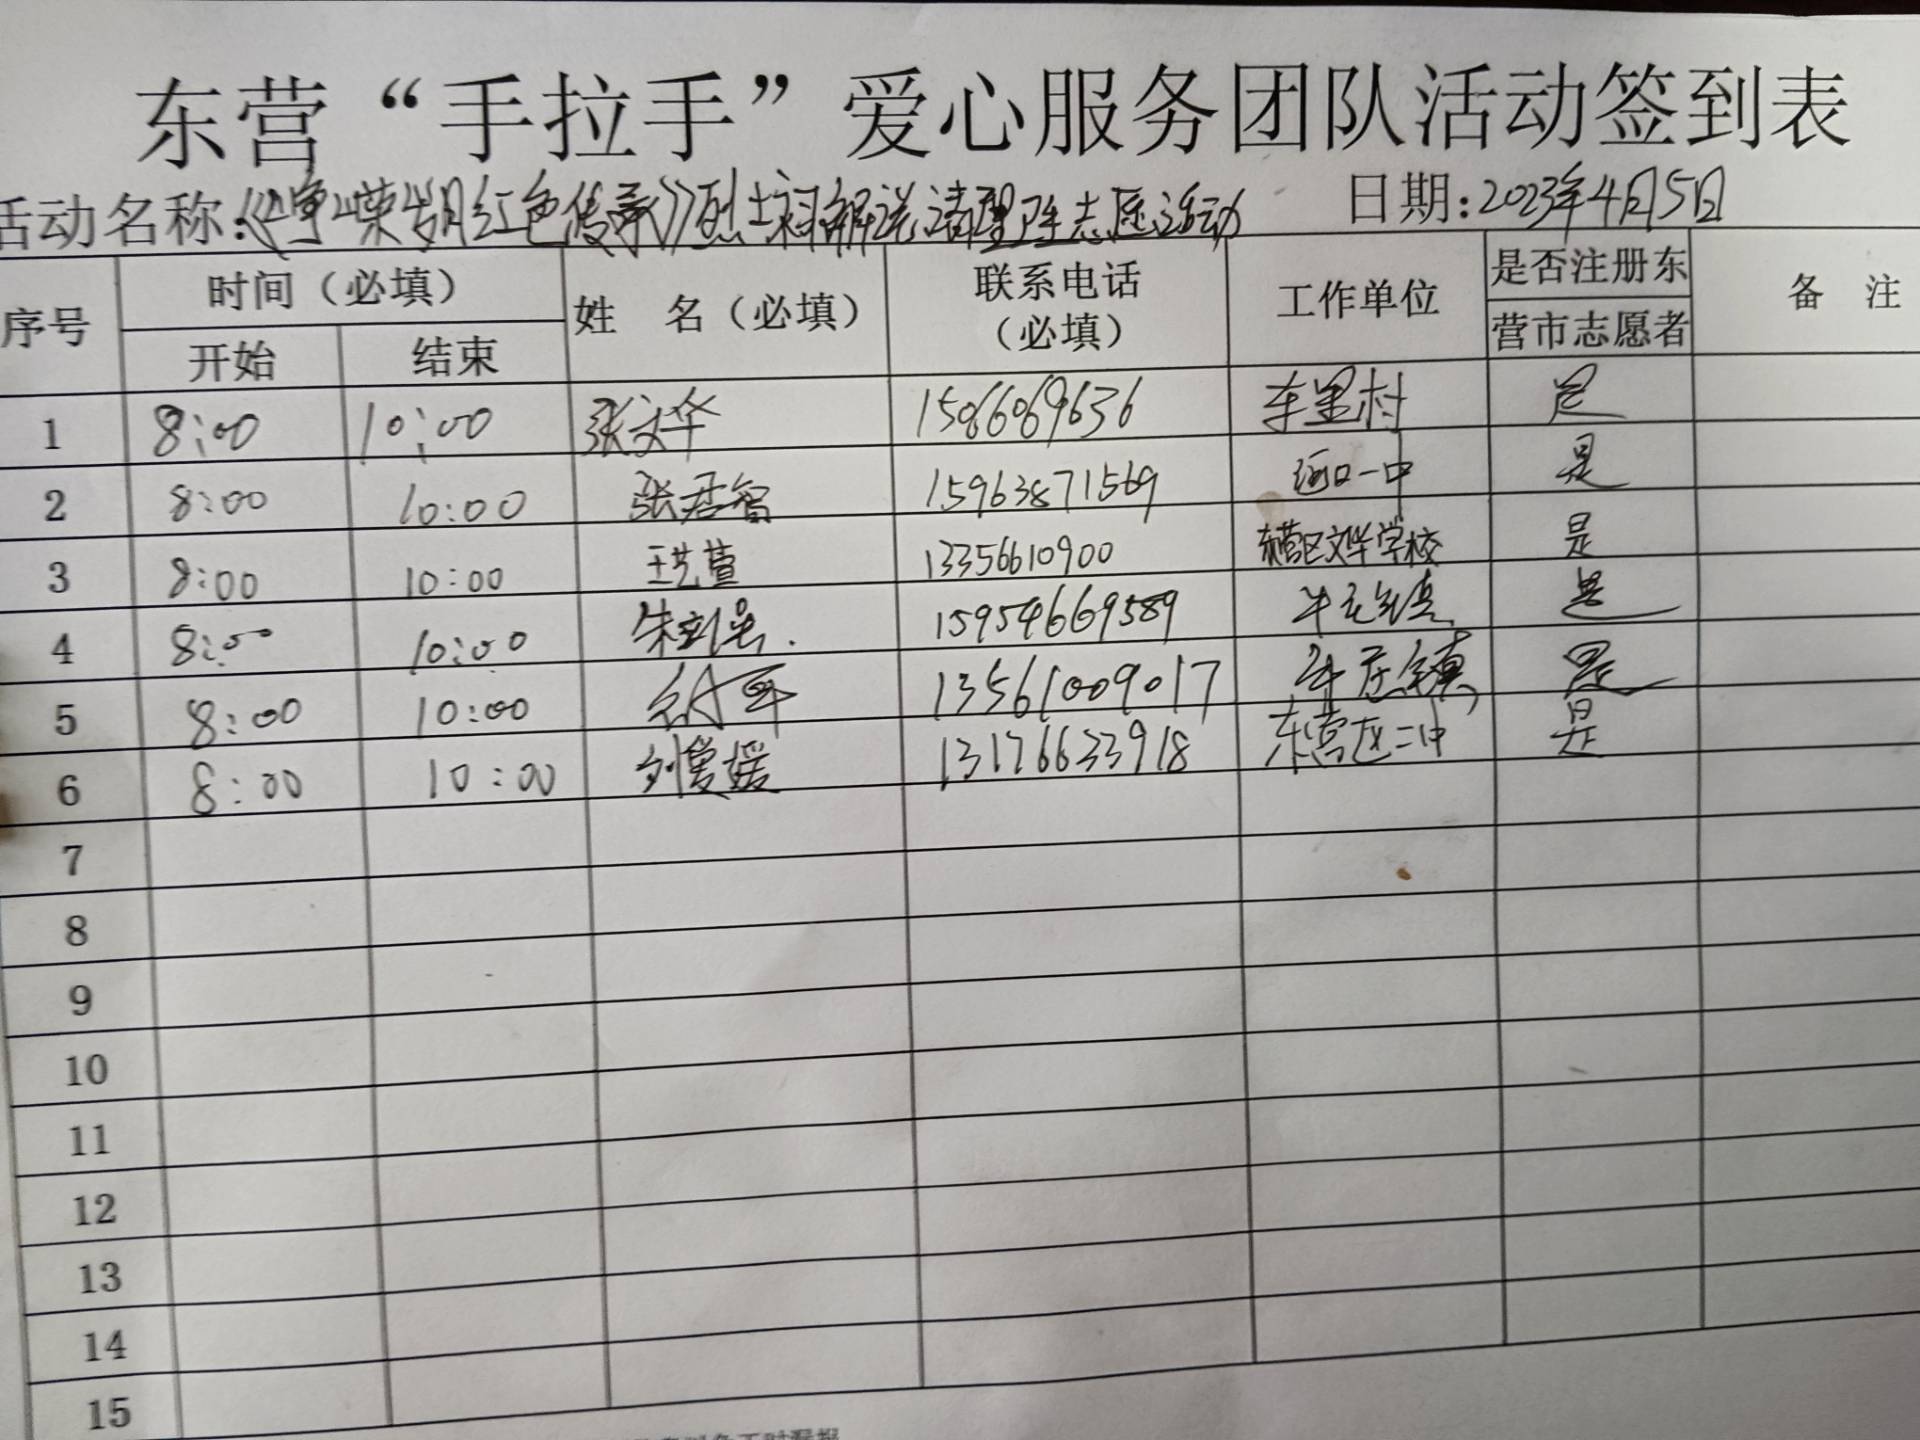 东营“手拉手”爱心服务团队活动签到表
活动名称:《峥嵘岁月红色传承》烈士祠解说清理卫生志愿活动 日期:2023年4月5日
序号 时间（必填） 姓 名（必填） 联系电话（必填） 工作单位 是否注册东营市志愿者 备 注
开始 结束
1 8:00 10:00 张文华 15066069636 车里村 是
2 8:00 10:00 张君智 15963871569 河口一中 是
3 8:00 10:00 王艺萱 13356610900 东营区文华学校 是
4 8:00 10:00 15954669589 牛庄镇 是
5 8:00 10:00 13561009017 牛庄镇 是
6 8:00 10:00 刘爱媛 13176633918 东营区二中 是
7
8
9
10
11
12
13
14
15